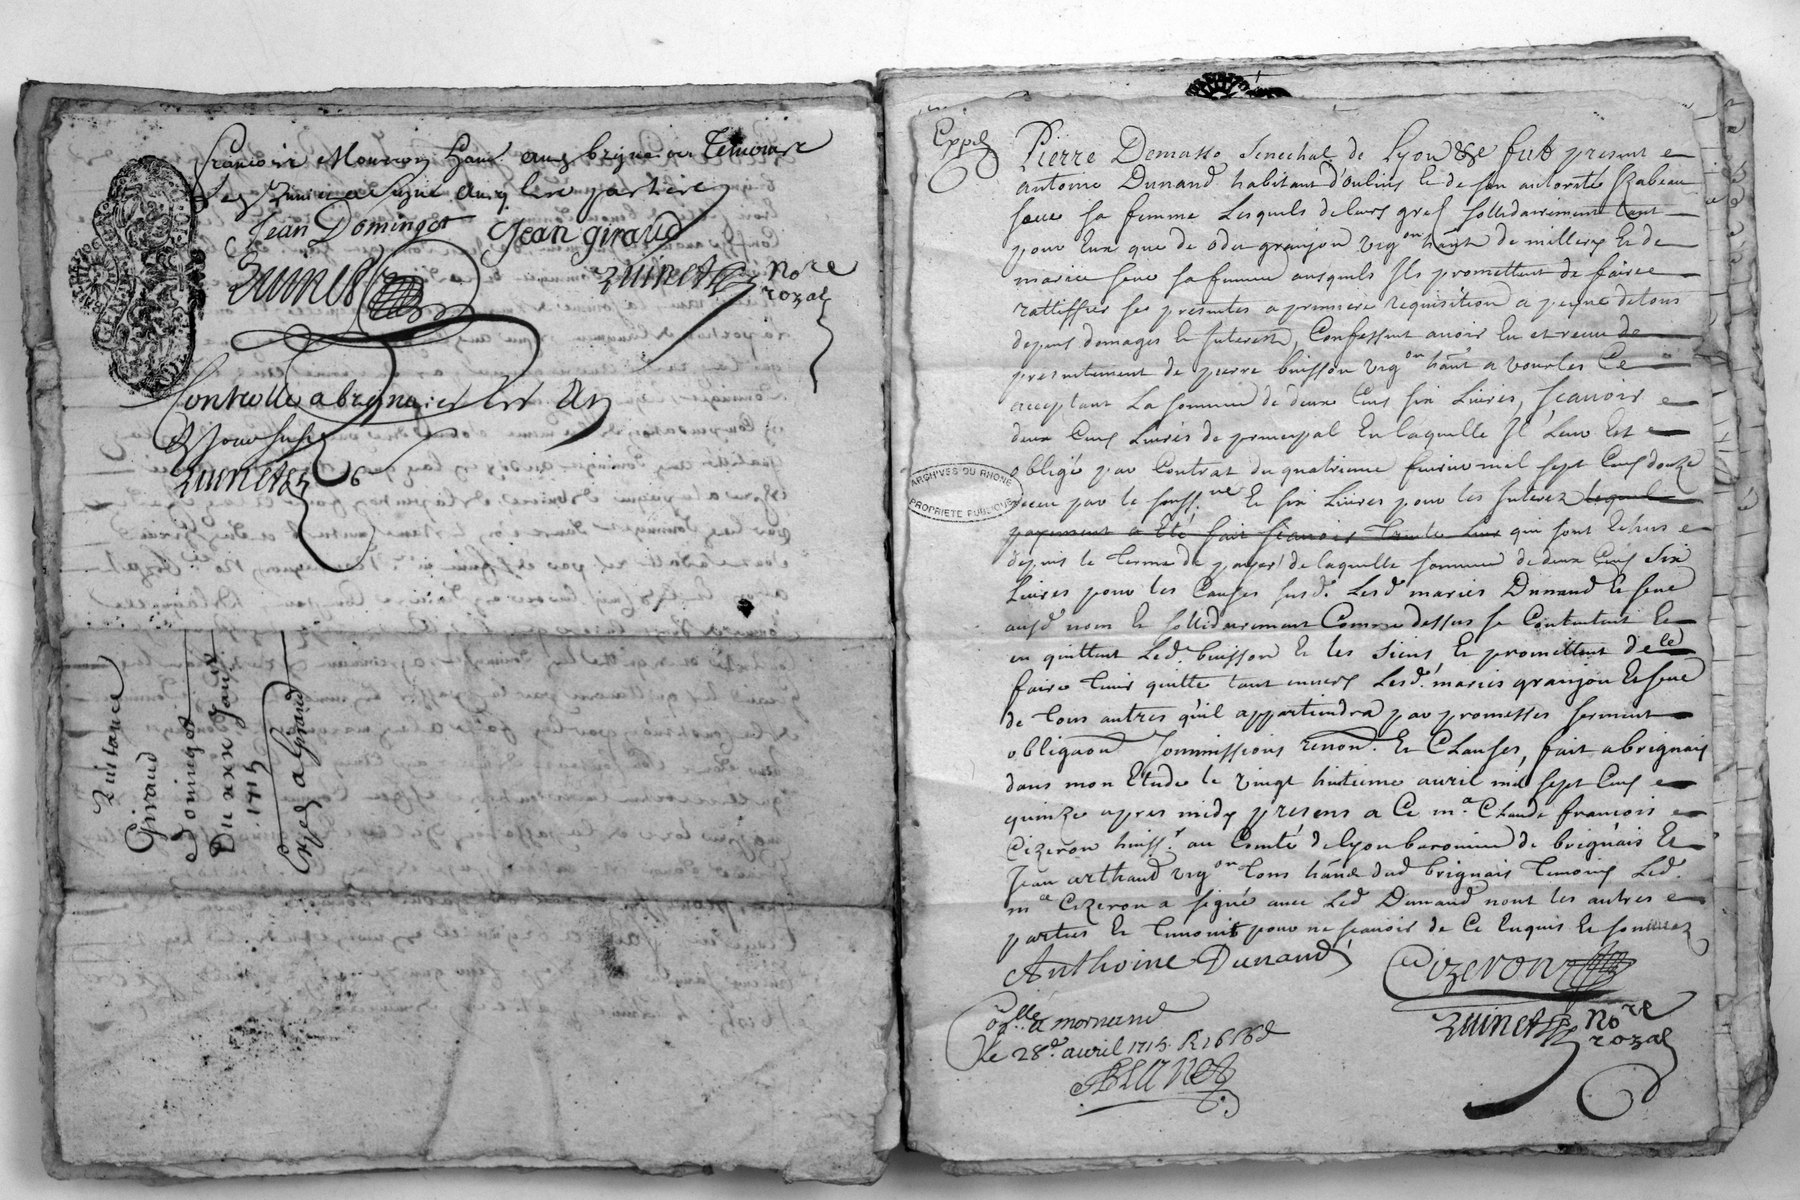 francois
Jean Domingot Jean giraud
No re
rozal
Controlle a brignais
Quitance
Giraud
Domingot
Du xxx Janv
1715
Exped a Giraud
Exped
Pierre Demasso Senechal de Lyon &e fut present
antoine Dunand habitant d'oulins & de son autorité Izabeau
seve sa femme Lesquels de leurs gref sollidairement tant
pour Eux que de odet granjon vig on hãnt de millery Et de
marie seve sa femme ausquels Ils promettent de faire
rattiffier ses presentes a premiere requisition a peyne de tous
depens domages & Interests, Confessent avoir Eu et receu de
presentement de pierre buisson vig on hãnt a vourles Ce
acceptant La somme de deux Cens six Livres, scavoir
deux Cens Livres de principal En laquelle Il Leur Est
obligé par Contrat du quatrieme fevrier mil sept Cens douze
receu par le souss. ne Et six Livres pour les Interez lequel
payement a Eté fait scavoir trente Livres qui sont Echus
depuis le terme de payer de laquelle somme de deux Cens Six
Livres pour les Causes susd. Lesd maries Dunand Et seve
ausd nom Et sollidairement Comme dessus se Contentent Et
en quittent Led. buisson & les Siens & promettent de le
faire tenir quitte tant envers Lesd. maries granjon Et seve
de tous autres qu'il appartiendra par promesses serment
obligaõn soummissions renon. Et Clauses, fait a brignais
dans mon Etude le vingt huitieme avril mil sept Cens
quinze apres midy presens a Ce m.e Claude francois
Cizeron huiss.r au Comté de Lyon baronnie de brignais Et
Jean arthaud vig on tous hãnt dud brignais temoins Led.
m e Cizeron a signé avec Led Dunand non les autres
parties Et temoins pour ne scavoir de Ce Enquis Et sommez
Anthoine Dunand Cizeron
No re
rozal
Con.lle a mornand
le 28e avril 1715
ARCHIVES DU RHONE
PROPRIETE PUBLIQUE